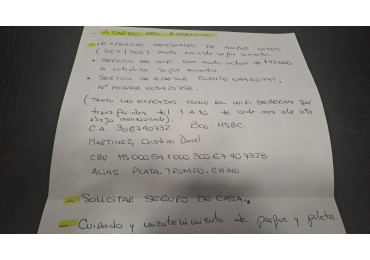 - A CARGO DEL INQUILINO
- EXPENSAS MENSUALES DE AMBOS LOTES
(367/368) monto según aumentos.
• SERVICIO DE WiFi con monto actual de $
a actualizar según aumentos
• SERVICIO DE EDESUR CLIENTE
N° MEDIDOR
(TANTO LAS EXPENSAS COMO EL WiFi DEBERAN SER
transferidos del 1 A 10 de cada mes al cta
abajo mencionada).
C.A. 306740732 Bco. HSBC.
MARTINEZ, Cristian Daniel
CBU
ALIAS: PLATA.TROMPO.CHINO
- SOLICITAR SEGURO DE CASA.
- Cuidado y mantenimiento de parque y pileta